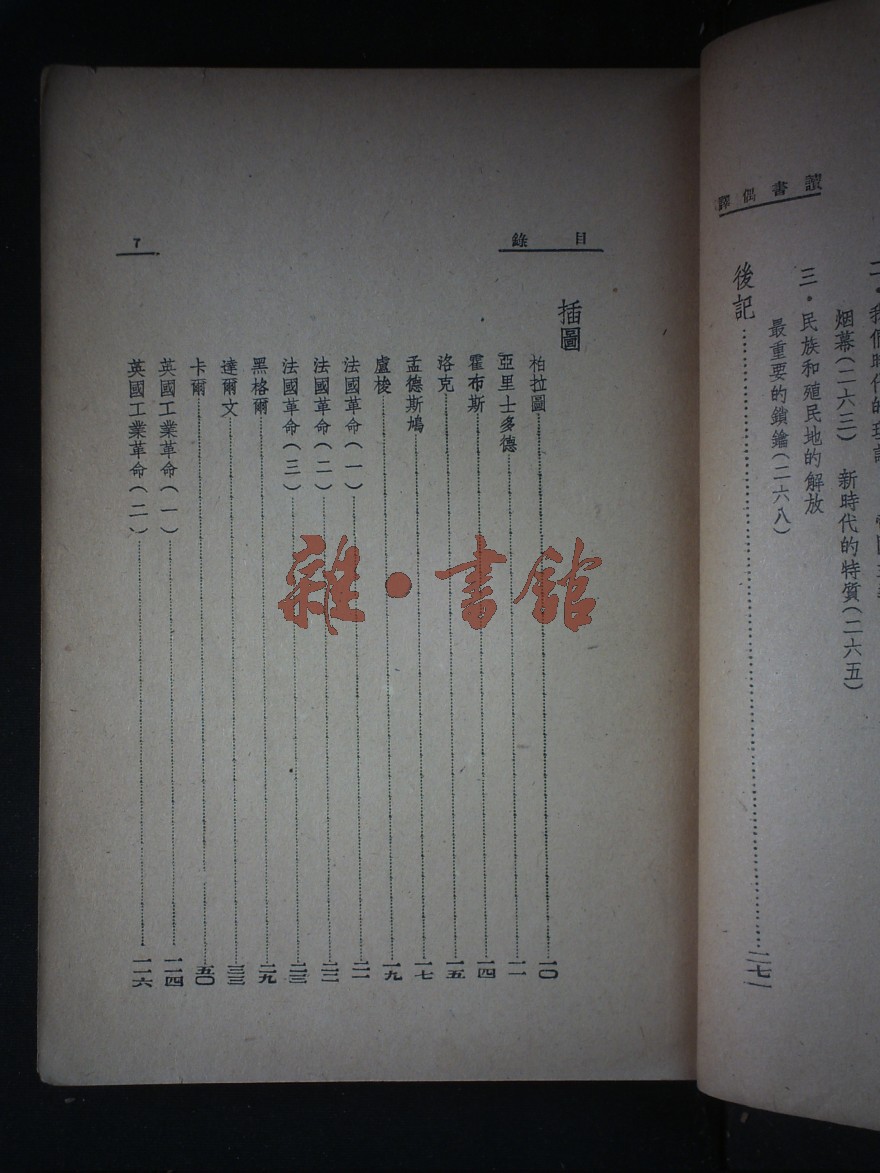 讀書偶譯
烟幕(二六三) 新時代的特質(二六五)
三・民族和殖民地的解放
最重要的鎖鑰(二六八)
後記……二七一
目錄
7
插圖
柏拉圖……一〇
亞里士多德……一一
霍布斯……一四
洛克……一五
孟德斯鳩……一七
盧梭……一九
法國革命(一)……二一
法國革命(二)……二二
法國革命(三)……二三
黑格爾……二九
達爾文……三三
卡爾……五〇
英國工業革命(一)……一一四
英國工業革命(二)……一一六
雜・書館